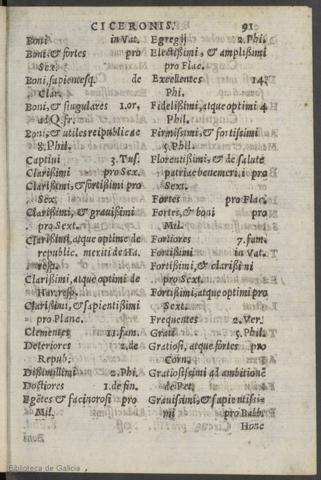 CICERONIS. 91
Boni in Vat.
Boni & fortes pro
Sex.
Boni, sapientesq. de
Clar.
Boni, & singulares 1. or.
ad Q. fr.
Boni, & utiles reipublicae
8. Phil.
Captiui 3. Tus.
Clarißimi pro Sex.
Clarißimi, & fortißimi pro
Sex.
Clarißimi, & grauißimi
pro Sext.
Clarißimi, atque optime de
republic. meriti de Ha.
resp.
Clarißimi, atque optimi de
Har. resp.
Clarißimi, & sapientißimi
pro Planc.
Clementes 11. fam.
Deteriores 2. de
Repub.
Dißimillimi 2. Phi.
Doctiores 1. de fin.
Egētes & facinorosi pro
Mil.
Egregij 2. Phi.
Electißimi, & amplißimi
pro Flac.
Excellentes 14.
Phi.
Fidelißimi, atque optimi 4
Phil.
Firmißimi, & fortißimi
5. Phil.
Florentißimi, & de salute
patriae benemeriti pro
Sext.
Fortes pro Flac.
Fortes, & boni pro
Mil.
Fortiores 7. fam.
Fortißimi in Vat.
Fortißimi, & clarißimi
pro Sext.
Fortißimi, atque optimi pro
Sext.
Frequentes 2. Ver.
Grati 5. Phil.
Gratiosi, atque fortes pro
Corn.
Gratiosißimi ad ambitionē
de Pet.
Grauißimi, & sapientißi=
mi pro Balb.
Hone
Biblioteca de Galicia